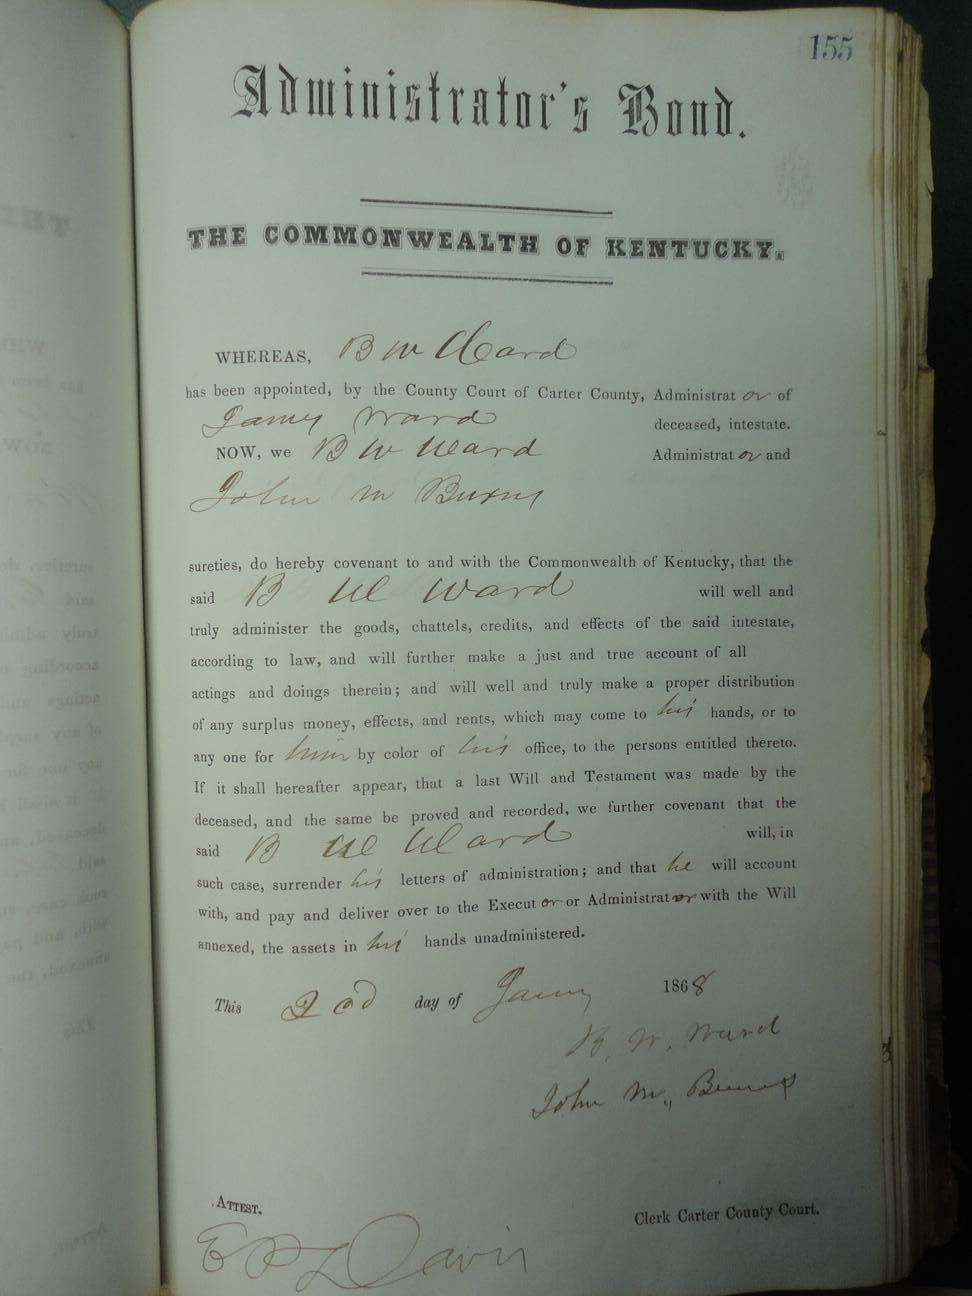 155
Administrator's Bond.
THE COMMONWEALTH OF KENTUCKY.
WHEREAS, B W Ward
has been appointed, by the County Court of Carter County, Administrat or of
James Ward deceased, intestate.
NOW, we B W Ward Administrat or and
John M Burns
sureties, do hereby covenant to and with the Commonwealth of Kentucky, that the
said B W Ward will well and
truly administer the goods, chattels, credits, and effects of the said intestate,
according to law, and will further make a just and true account of all
actings and doings therein; and will well and truly make a proper distribution
of any surplus money, effects, and rents, which may come to his hands, or to
any one for him by color of his office, to the persons entitled thereto.
If it shall hereafter appear, that a last Will and Testament was made by the
deceased, and the same be proved and recorded, we further covenant that the
said B W Ward will, in
such case, surrender his letters of administration; and that he will account
with, and pay and deliver over to the Execut or or Administrat or with the Will
annexed, the assets in his hands unadministered.
This day of Jany 1868
B. W. Ward
John M. Burns
ATTEST.
Clerk Carter County Court.
Davis